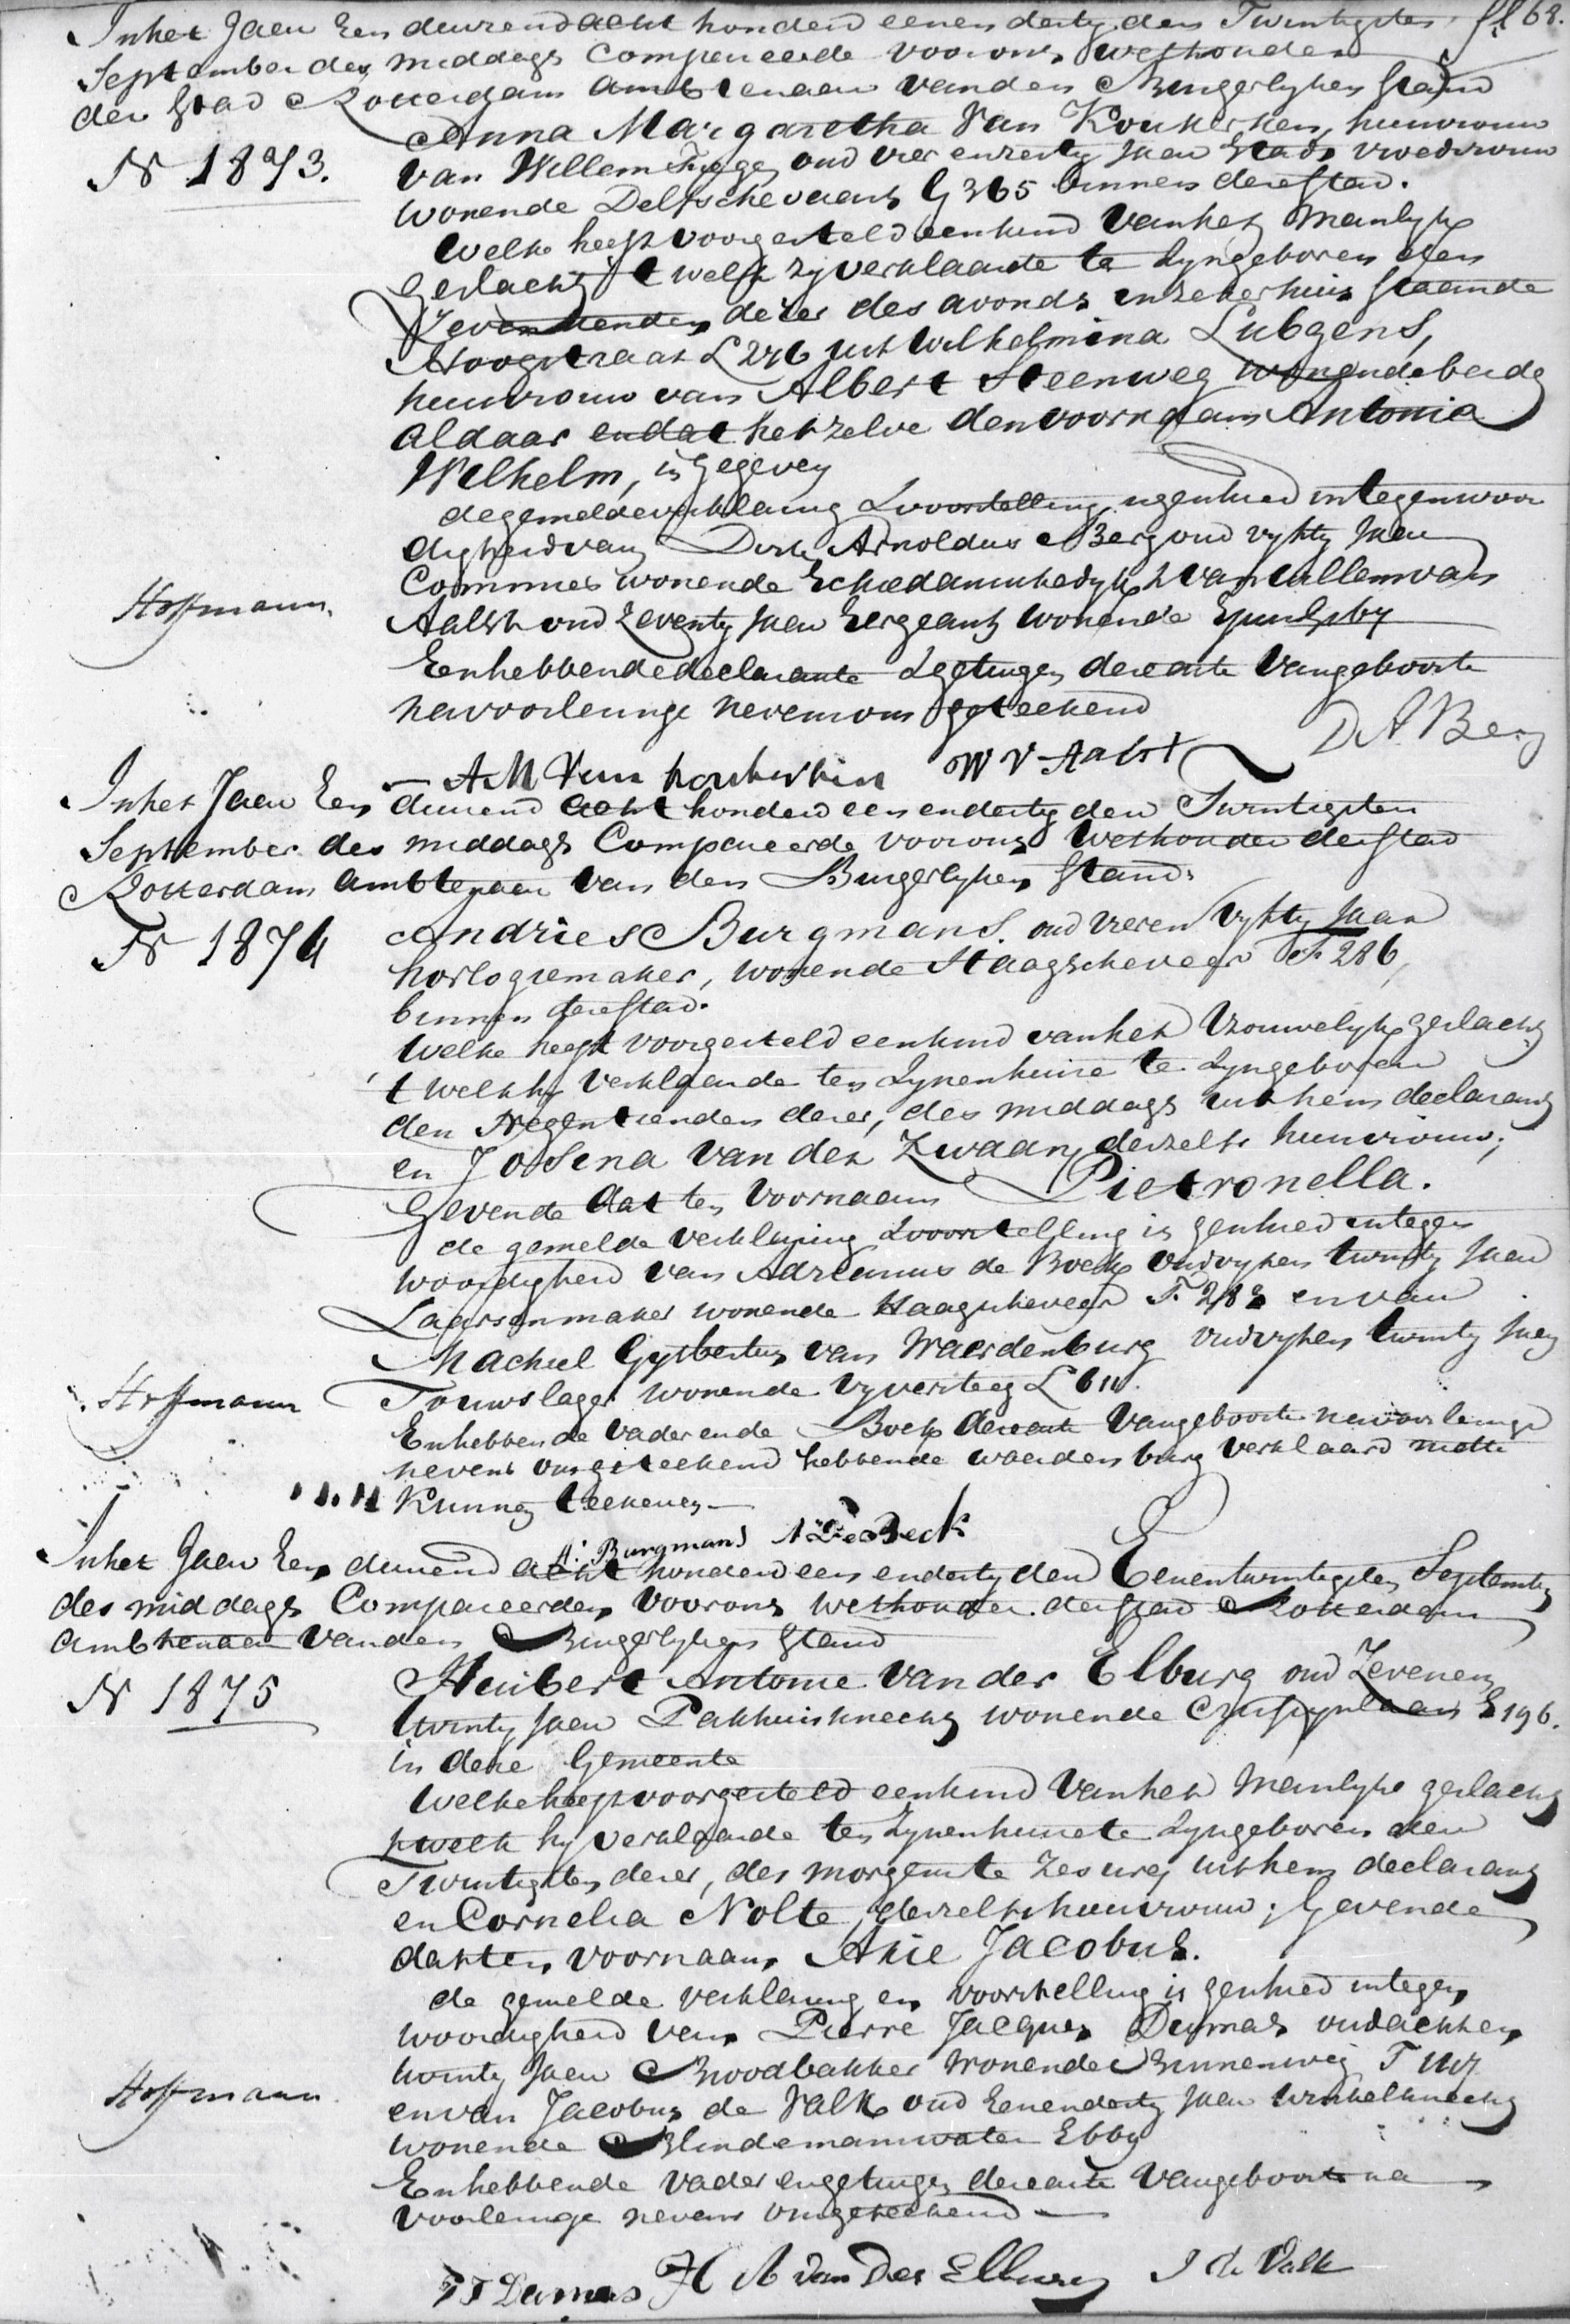 In het Jaar Een duizend acht honderd eenendertig den Twintigsten fl 68.
September des middags Compareerde voor ons Wethouder
der Stad Rotterdam Ambtenaar van den Burgerlyken Stand
Anna Margaretha Van Koukerken, huisvrouw
N 1873.
van Willem oud vier enzestig Jaar Stads vroedvrouw
wonende Delfschevaart G 365 binnen deze Stad.
Welke heeft voorgesteld een kind van het Manlyk
Geslacht t welk zy verklaarde te zyn geboren den
Zeventienden dezer des avonds in zeker huis staande
Hoogstraat L 246 uit Wilhelmina Lubgens,
huisvrouw van Albert Steenweg wonende beide
aldaar en dat het zelve den voornaam Antonia
Wilhelm, is Gegeven
de gemelde verklaring & voorstelling is geschied in tegenwoor
digheid van Dirk Arnoldus Berg oud vyftig Jaar
Commies wonende Schiedamschedyk & van Willem van
Hoffmann.
Aalst oud Zeventig Jaar Sergeant wonende
En hebben de declarante & getuigen deze acte van geboorte
na voorlezinge nevens ons geteekend
D A Berg
A M Van Koukerken W V Aalst
In het Jaar Een duizend acht honderd een en dertig den Twintigsten
September des middags Compareerde voor ons Wethouder der Stad
Rotterdam Ambtenaar van den Burgerlyken Stand
N 1874
Andries Burgmans. oud vier en Vyftig Jaar
horlogiemaker, wonende Haagscheveer F 286,
binnen deze Stad.
Welke heeft voorgesteld een kind van het Vrouwelyk geslacht
t welk hy verklaarde ten zynen huize te zyn geboren
den Negentienden dezer, des middags uit hem declarant
en Josina van der Zwaan, deszelfs huisvrouw;
Gevende dat ten Voornaam Pietronella.
de gemelde verklaring & voorstelling is geschied in tegen
woordigheid van Adrianus de Boek oud vyf en twintig Jaar
Laarsenmaker wonende Haagscheveer F 282 en van
Machiel Gysbertus van Waardenburg oud vyf en twintig Jaar
Hoffmann
Touwslager wonende Vyversteeg L 611.
En hebben de vader en de Boek deze acte van geboorte na voorlezinge
nevens ons geteekend hebbende Waardenburg verklaard niet te
Kunnen teekenen
A: Burgmans A De Boek
In het Jaar Een duizend acht honderd een en dertig den Eenentwintigsten September
des middags Compareerden Voor ons Wethouder der Stad Rotterdam
Ambtenaar van den Burgerlyken Stand
N 1875
Huibert Antonie van der Elburg oud Zeven en
twintig Jaar Pakhuisknecht wonende Crispynlaan E 196.
in deze Gemeente
Welke heeft voorgesteld een kind van het Manlyke geslacht
t welk hy verklaarde ten zynen huize te zyn geboren den
Twintigsten dezer, des morgens te Zes uren uit hem declarant
en Cornelia Nolte, deszelfs huisvrouw; Gevende
dat ten voornaam Arie Jacobus.
de gemelde verklaring en voorstelling is geschied in tegen
woordigheid van Pierre Jacques Dumas oud acht en
twintig Jaar Broodbakker wonende Binnenweg
Hoffmann
en van Jacobus de Valk oud Eenendertig Jaar Winkelknecht
wonende Blindemanswater
En hebben de vader en getuigen deze acte van geboorte na
voorlezinge nevens ons geteekend
P J Dumas H A van Der Elburg J de Valk